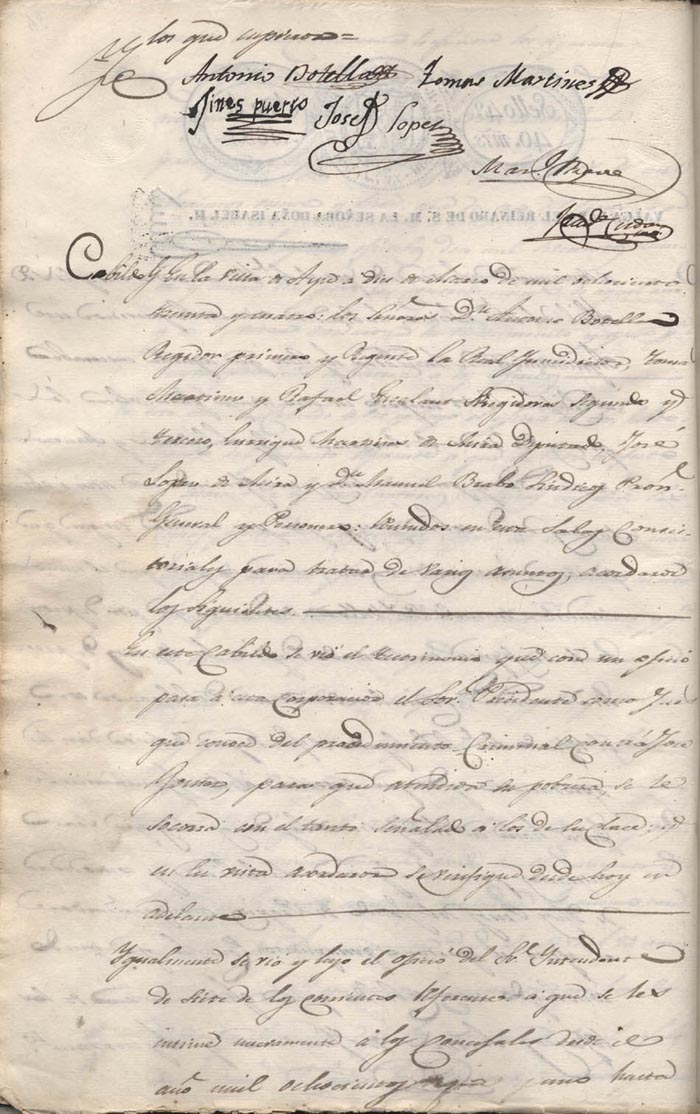 los que supieron=
Antonio Botella Tomas Martines
Gines puerto Josef Lopez
Man.l
VALGA EL REINADO DE S. M. LA SEÑORA DOÑA ISABEL II.
Sello 4º
40. mrs
Cabildo En la villa de Aspe a dies de Marzo de mil ochocientos
treinta y cuatro: los Señores D.n Antonio Botella
Regidor primero y Regente la Real Jurisdiccion, Tomas
Martines y Rafael Regidores Segundo y
tercero, Enrrique Martines de Diputado, José
Lopez de y D.n Manuel Brabo Sindicos Pror.
General y Personero: en Salas Consis-
toriales para tratar de varios asuntos, acordaron
los siguientes
En este Cabildo se vió el testimonio que con un oficio
pasa a esta Corporacion el Sor. Presidente como Jues
que conoce del procedimiento Criminal contra Jose
para que atendida su pobresa, se le
socorra con el tanto señalado a los de su clace; y
en su vista acordaron se verifique desde hoy en
adelante
Ygualmente se vió y leyó el oficio del Sr. Yntendente
de Siete de los corrientes a que se les
nuevamente á los Concejales desde el
año mil ochocientos hasta